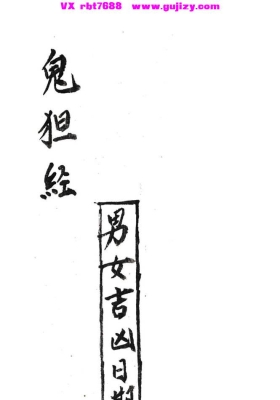 VX rbt7688 www.gujizy.com
鬼狚経
男女吉凶日期